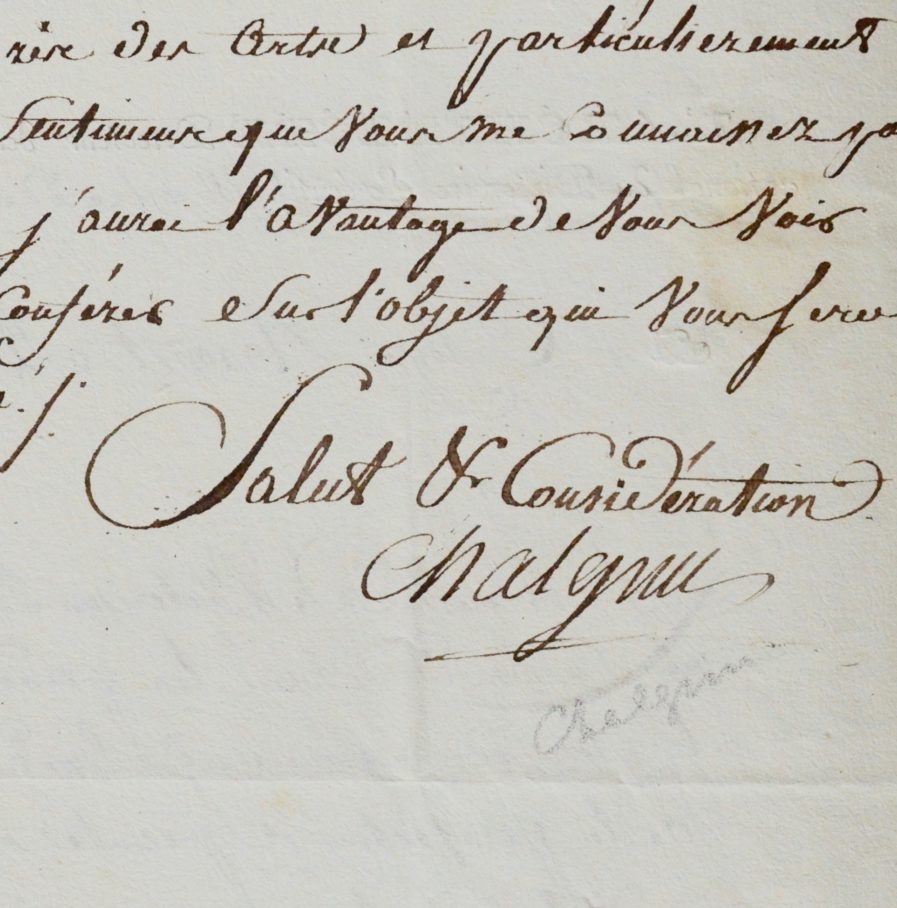 des Arts et particulierement
Sentimens que Vous me Connoissez
j'aurai l'avantage de Vous Voir
Conférer Sur l'objet qui Vous sera
Salut & Considération
Chalgrin
Chalgrin